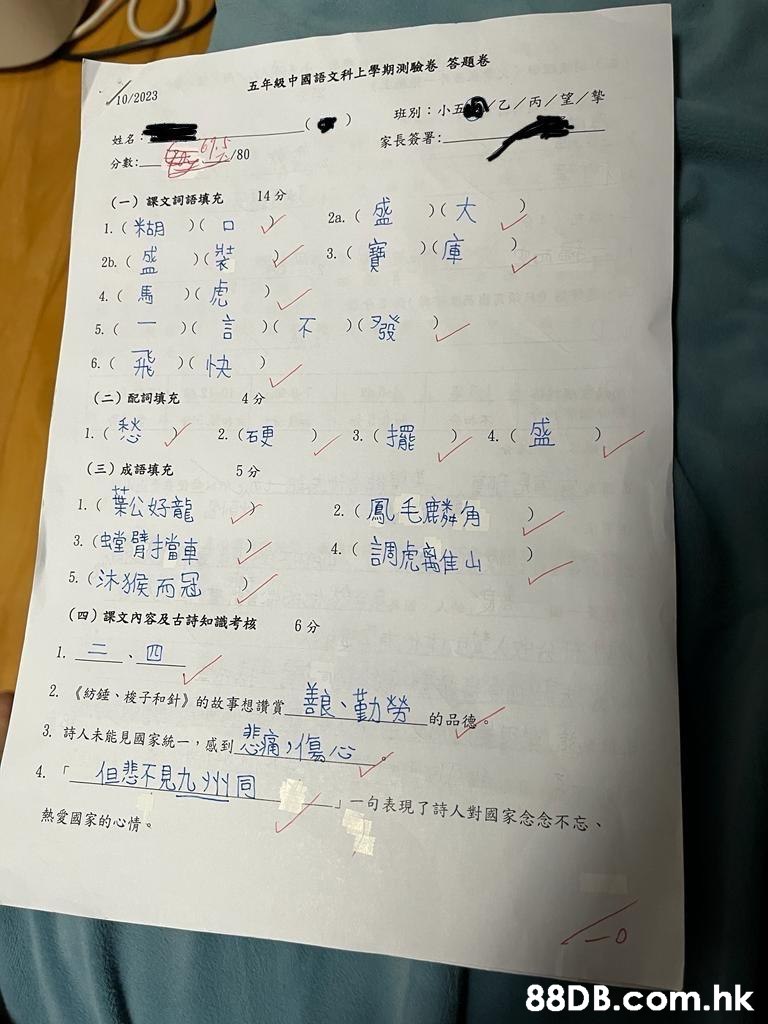 10/2023
五年級中國語文科上學期測驗卷 答題卷
班別：小五 /乙/丙/望/摯
姓名：( )
家長簽署：
分數： 67.5 /80
(一) 課文詞語填充 14分
1. ( 糊 )( 口 )
2a. ( 盛 )( 大 )
2b. ( 盛 )( 裝 )
3. ( 寶 )( 庫 )
4. ( 馬 )( 虎 )
5. ( 一 )( 言 )( 不 )( 發 )
6. ( 飛 )( 快 )
(二) 配詞填充 4分
1. ( 愁 ) 2. ( 硬 ) 3. ( 擺 ) 4. ( 盛 )
(三) 成語填充 5分
1. ( 葉公好龍 )
2. ( 鳳毛麟角 )
3. ( 螳臂擋車 )
4. ( 調虎離山 )
5. ( 沐猴而冠 )
(四) 課文內容及古詩知識考核 6分
1. 二、四
2. 《紡錘、梭子和針》的故事想讚賞 善良、勤勞 的品德。
3. 詩人未能見國家統一，感到 悲痛，傷心 。
4. 「 但悲不見九州同 」一句表現了詩人對國家念念不忘、
熱愛國家的心情。
-0
88DB.com.hk